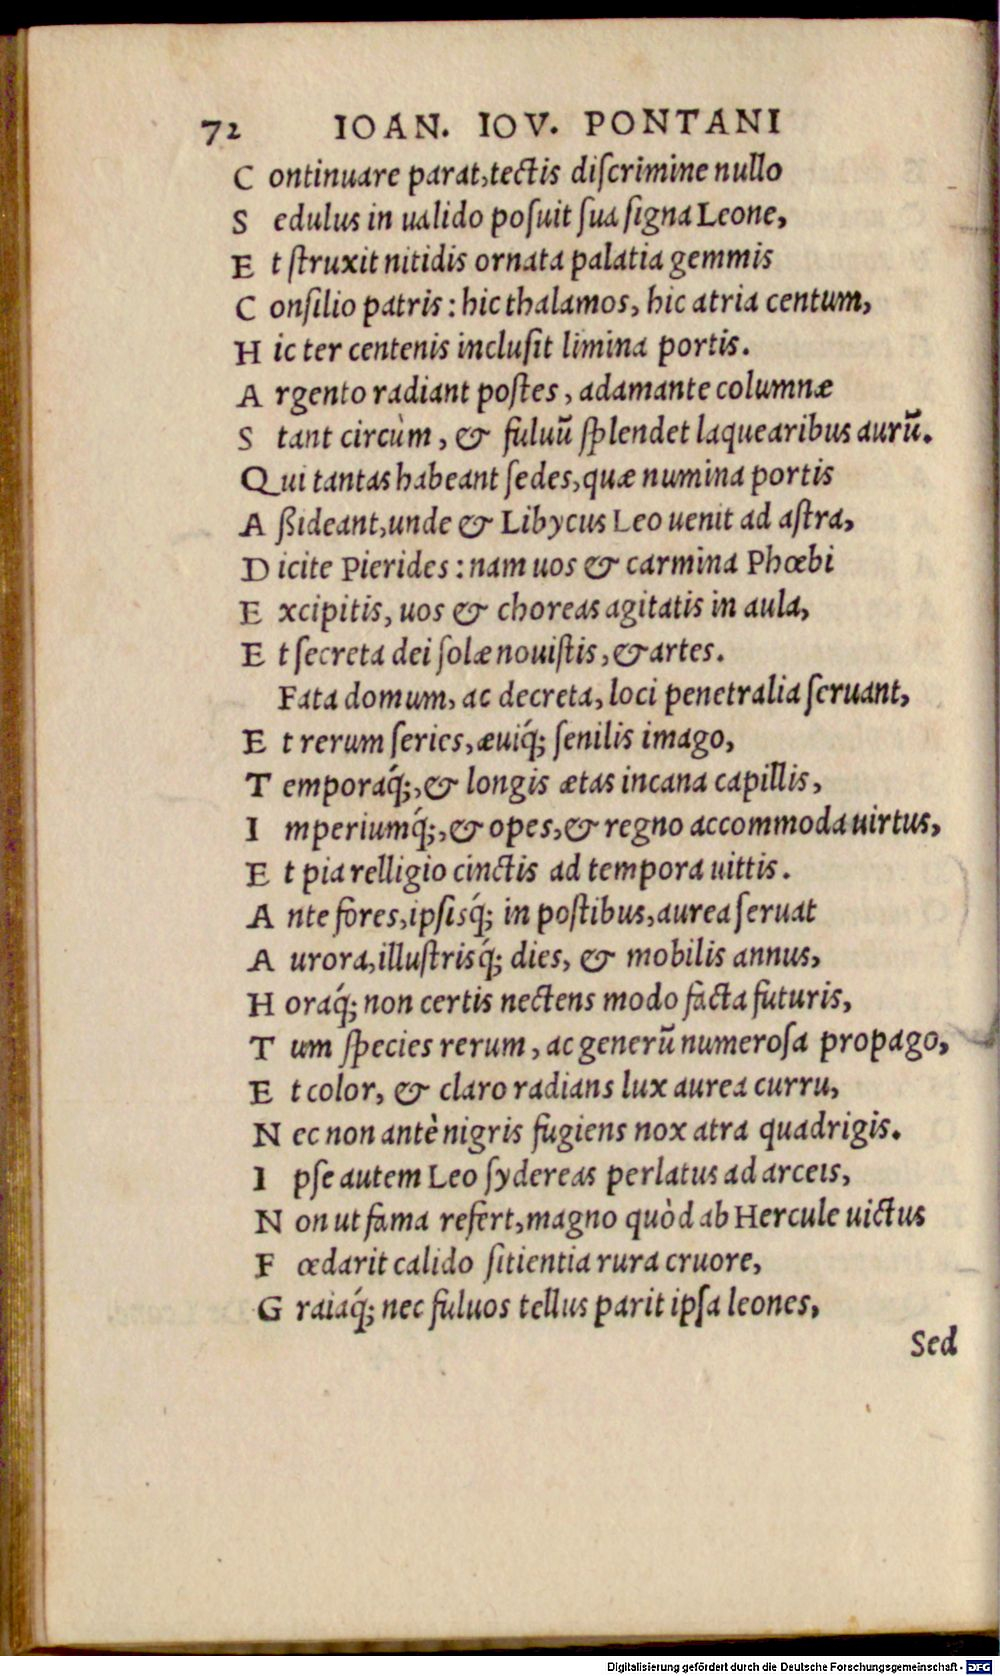 72 IOAN. IOV. PONTANI
C ontinuare parat, tectis diſcrimine nullo
S edulus in ualido poſuit ſua ſigna Leone,
E t ſtruxit nitidis ornata palatia gemmis
C onſilio patris: hic thalamos, hic atria centum,
H ic ter centenis incluſit limina portis.
A rgento radiant poſtes, adamante columnæ
S tant circùm, & fuluū ſplendet laquearibus aurū.
Q ui tantas habeant ſedes, quæ numina portis
A ßideant, unde & Libycus Leo uenit ad aſtra,
D icite Pierides: nam uos & carmina Phœbi
E xcipitis, uos & choreas agitatis in aula,
E t ſecreta dei ſolæ nouiſtis, & artes.
Fata domum, ac decreta, loci penetralia ſeruant,
E t rerum ſeries, æuiq́; ſenilis imago,
T emporaq́;, & longis ætas incana capillis,
I mperiumq́;, & opes, & regno accommoda uirtus,
E t pia relligio cinctis ad tempora uittis.
A nte fores, ipſisq́; in poſtibus, aurea ſeruat
A urora, illuſtrisq́; dies, & mobilis annus,
H oraq́; non certis nectens modo facta futuris,
T um ſpecies rerum, ac generū numeroſa propago,
E t color, & claro radians lux aurea curru,
N ec non antè nigris fugiens nox atra quadrigis.
I pſe autem Leo ſydereas perlatus ad arceis,
N on ut fama refert, magno quòd ab Hercule uictus
F œdarit calido ſitientia rura cruore,
G raiaq́; nec fuluos tellus parit ipſa leones,
Sed
Digitalisierung gefördert durch die Deutsche Forschungsgemeinschaft - DFG